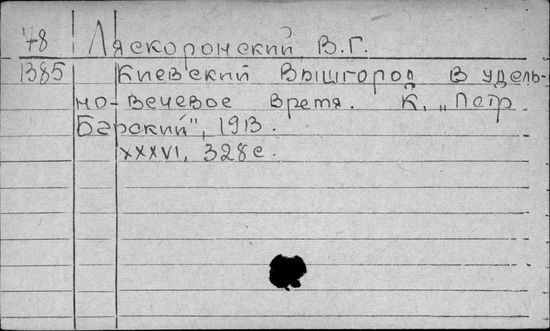 78 Ляскоронский, В.Г.
1385 Киевский Вышгород в удель-
но-вечевое время. К, „Петр
Барский", 1913.
XXXVI, 328с.